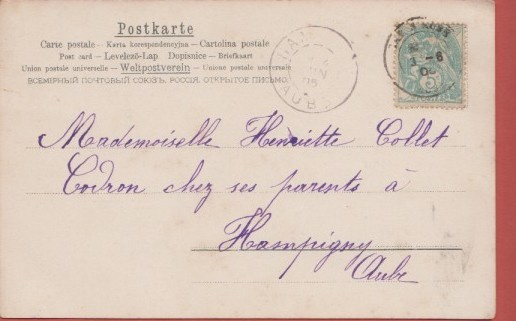 Postkarte
Carte postale — Karta korespondencyjna — Cartolina postale
Post card — Levelező-Lap Dopisnice — Briefkaart
Union postale universelle — Weltpostverein — Unione postale universale
ВСЕМІРНЫЙ ПОЧТОВЫЙ СОЮЗЪ, РОССІЯ. ОТКРЫТОЕ ПИСЬМО.
AUBE
5
Mademoiselle Henriette Collet
Codron chez ses parents à
Hampigny
Aube